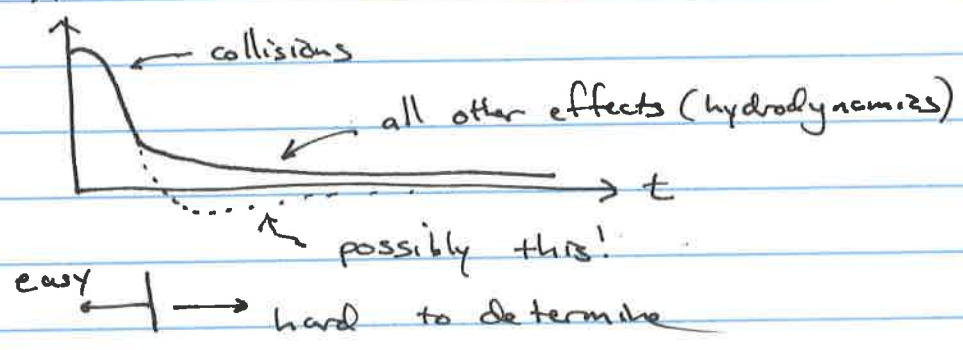 collisions
all other effects (hydrodynamics)
t
possibly this!
easy
hard to determine